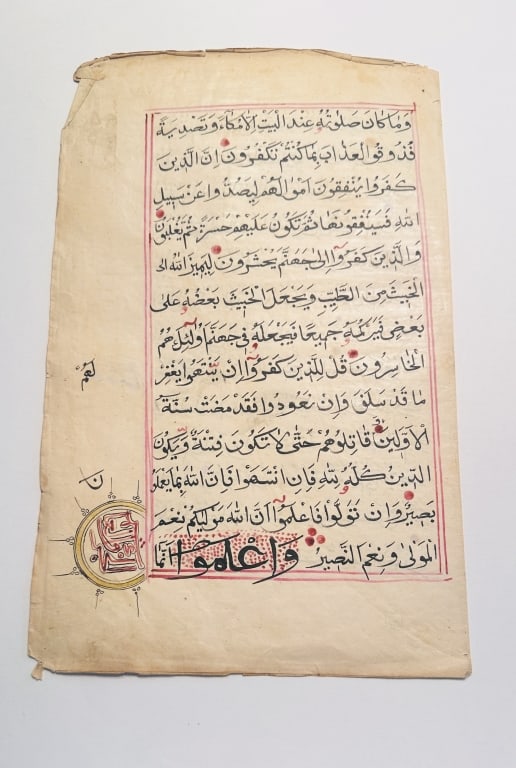 وَمَا كَانَ صَلَوتُهُ عِنْدَ الْبَيْتِ اِلَّا مُكَآءً وَتَصْدِيَةً
فَذُوقُوا الْعَذَابَ بِمَا كُنْتُمْ تَكْفُرُونَ اِنَّ الَّذِينَ
كَفَرُوا يُنْفِقُونَ اَمْوَالَهُمْ لِيَصُدُّوا عَنْ سَبِيلِ
اللهِ فَسَيُنْفِقُونَهَا ثُمَّ تَكُونُ عَلَيْهِمْ حَسْرَةً ثُمَّ يُغْلَبُونَ
وَالَّذِينَ كَفَرُوا اِلٰى جَهَنَّمَ يُحْشَرُونَ لِيَمِيزَ اللهُ
الْخَبِيثَ مِنَ الطَّيِّبِ وَيَجْعَلَ الْخَبِيثَ بَعْضَهُ عَلٰى
بَعْضٍ فَيَرْكُمَهُ جَمِيعًا فَيَجْعَلَهُ فِى جَهَنَّمَ اُولٰٓئِكَ هُمُ
الْخَاسِرُونَ قُلْ لِلَّذِينَ كَفَرُوٓا اِنْ يَنْتَهُوا يُغْفَرْ
لَهُمْ
مَا قَدْ سَلَفَ وَاِنْ يَعُودُوا فَقَدْ مَضَتْ سُنَّةُ
الْاَوَّلِينَ وَقَاتِلُوهُمْ حَتّٰى لَا تَكُونَ فِتْنَةٌ وَيَكُونَ
الدِّينُ كُلُّهُ لِلّٰهِ فَاِنِ انْتَهَوْا فَاِنَّ اللهَ بِمَا يَعْمَلُو
نَ
بَصِيرٌ وَاِنْ تَوَلَّوْا فَاعْلَمُوٓا اَنَّ اللهَ مَوْلٰيكُمْ نِعْمَ
الْمَوْلٰى وَنِعْمَ النَّصِيرُ وَاعْلَمُوٓا اَنَّمَا